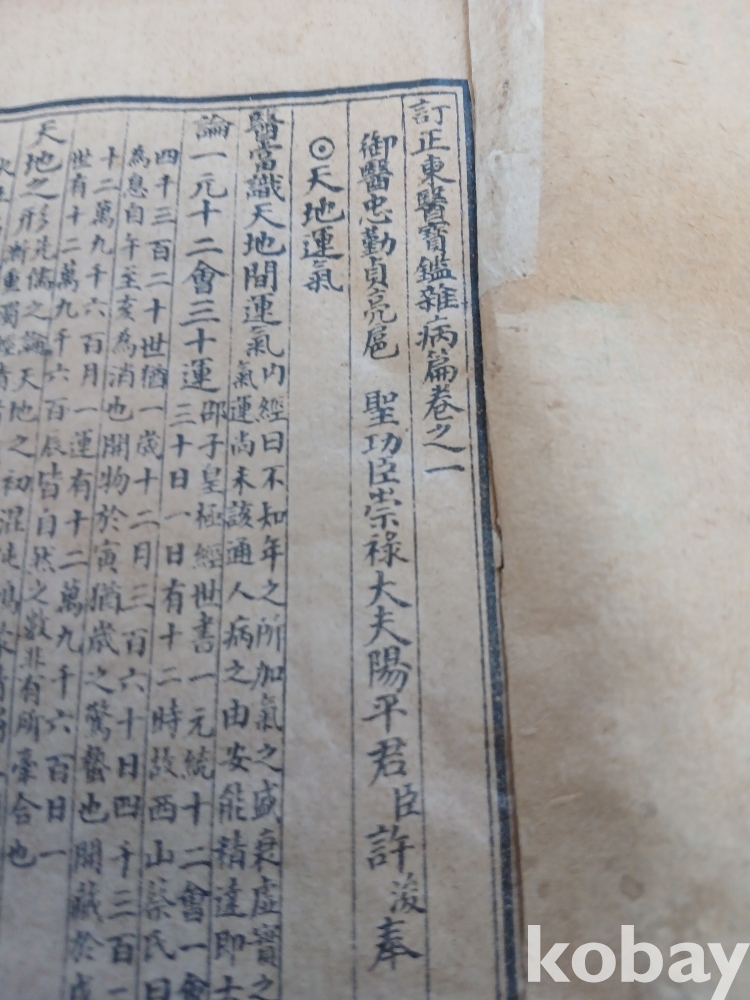 訂正東醫寶鑑雜病篇卷之一
御醫忠勤貞亮扈 聖功臣崇祿大夫陽平君臣許浚奉
⊙天地運氣
醫當識天地間運氣內經曰不知年之所加氣之盛衰虛實之
氣運尚未該通人病之由安能精達即士
論一元十二會三十運邵子皇極經世書一元統十二會一會
三十日一日有十二時故西山蔡氏曰
四千三百二十世猶一歲十二月三百六十日四千三百二
為息自午至亥為消也開物於寅猶歲之驚蟄也閉藏於戌
十二萬九千六百月一運有十二萬九千六百日一
世有十二萬九千六百辰皆自然之數非有所牽合也
天地之形先儒之論天地之初混沌鴻
漸重濁
kobay